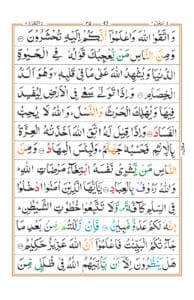 وَاتَّقُوا اللّٰهَ وَاعْلَمُوْۤا اَنَّكُمْ اِلَيْهِ تُحْشَرُوْنَ
وَمِنَ النَّاسِ مَنْ يُّعْجِبُكَ قَوْلُهٗ فِى الْحَيٰوةِ
الدُّنْيَا وَيُشْهِدُ اللّٰهَ عَلٰى مَا فِىْ قَلْبِهٖ وَهُوَ اَلَدُّ
الْخِصَامِ وَاِذَا تَوَلّٰى سَعٰى فِى الْاَرْضِ لِيُفْسِدَ
فِيْهَا وَيُهْلِكَ الْحَرْثَ وَالنَّسْلَ وَاللّٰهُ لَا يُحِبُّ
الْفَسَادَ وَاِذَا قِيْلَ لَهُ اتَّقِ اللّٰهَ اَخَذَتْهُ الْعِزَّةُ
بِالْاِثْمِ فَحَسْبُهٗ جَهَنَّمُ وَلَبِئْسَ الْمِهَادُ وَمِنَ
النَّاسِ مَنْ يَّشْرِىْ نَفْسَهُ ابْتِغَآءَ مَرْضَاتِ اللّٰهِ
وَاللّٰهُ رَءُوْفٌۢ بِالْعِبَادِ يٰۤاَيُّهَا الَّذِيْنَ اٰمَنُوا ادْخُلُوْا
فِى السِّلْمِ كَآفَّةً وَلَا تَتَّبِعُوْا خُطُوٰتِ الشَّيْطٰنِ
اِنَّهٗ لَكُمْ عَدُوٌّ مُّبِيْنٌ فَاِنْ زَلَلْتُمْ مِّنْۢ بَعْدِ مَا
جَآءَتْكُمُ الْبَيِّنٰتُ فَاعْلَمُوْۤا اَنَّ اللّٰهَ عَزِيْزٌ حَكِيْمٌ
هَلْ يَنْظُرُوْنَ اِلَّاۤ اَنْ يَّاْتِيَهُمُ اللّٰهُ فِىْ ظُلَلٍ مِّنَ